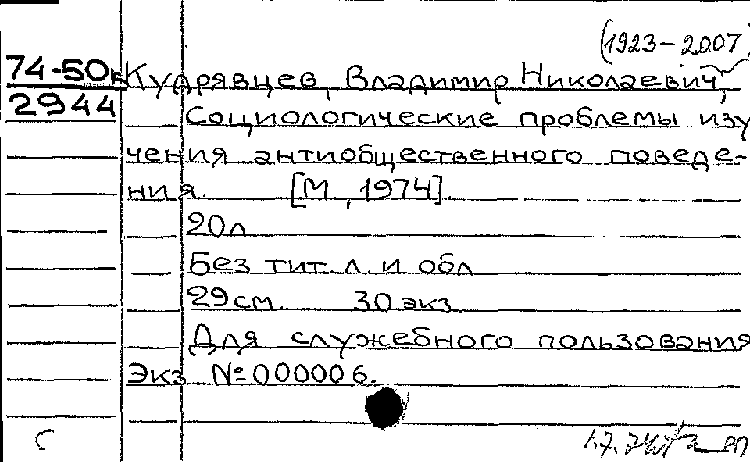 (1923-2007)
74-50к Кудрявцев, Владимир Николаевич,
2944 Социологические проблемы изу
чения антиобщественного поведе-
ния. [М, 1974].
20л
Без тит. л. и обл
29см. 30 экз
Для служебного пользования
Экз №000006.
С